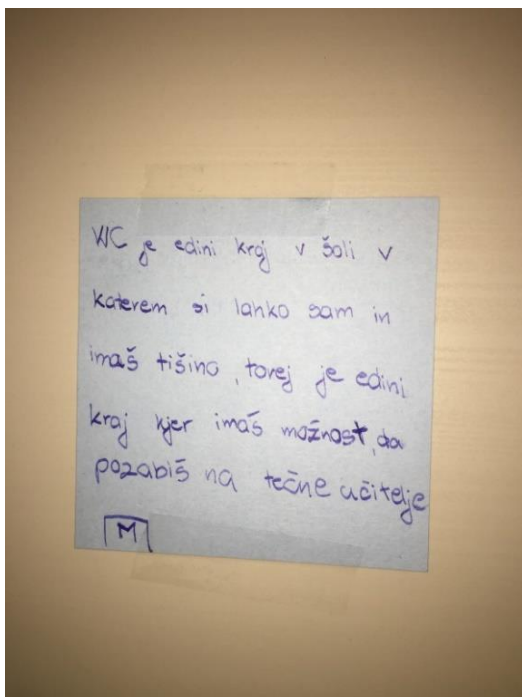 WC je edini kraj v šoli v
katerem si lahko sam in
imaš tišino, torej je edini
kraj kjer imaš možnost, da
pozabiš na tečne učitelje
M